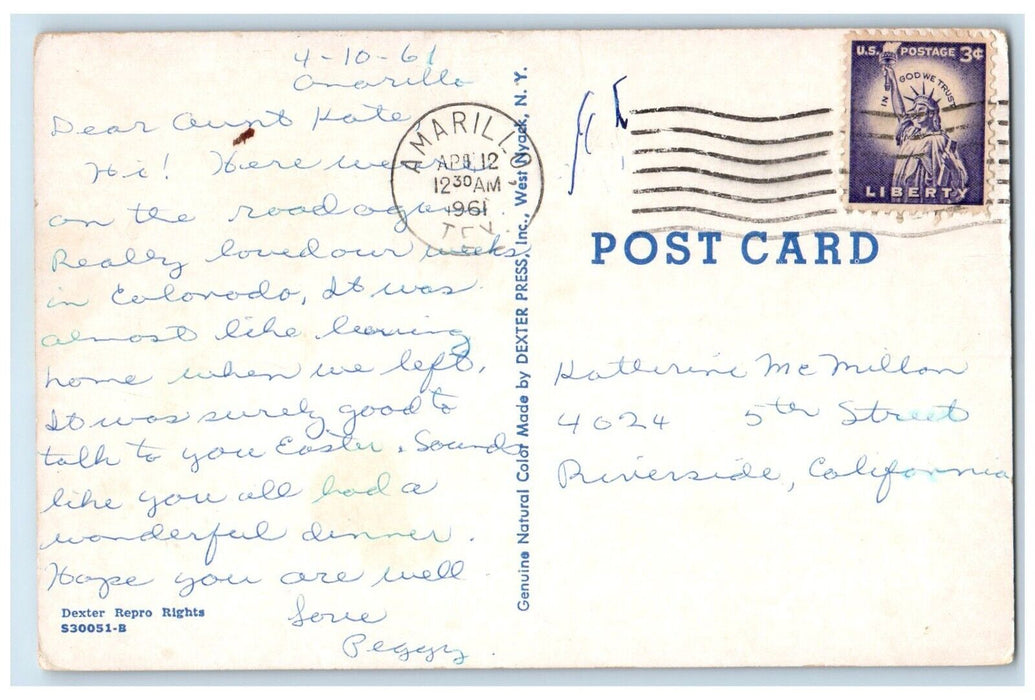 4-10-61
Amarillo
Dear Aunt Kate,
Hi! Here we are
on the road again
Really loved our weeks
in Colorado, It was
almost like leaving
home when we left.
It was surely good to
talk to you Easter. Sounds
like you all had a
wonderful dinner.
Hope you are well
Love
Peggy.
Dexter Repro Rights
S30051-B
Genuine Natural Color Made by DEXTER PRESS, Inc., West Nyack, N. Y.
AMARILLO
APR 12
12 30 AM
1961
TEX.
U.S. POSTAGE 3¢
IN GOD WE TRUST
LIBERTY
POST CARD
Katherine McMillan
4024 5th Street
Riverside, California